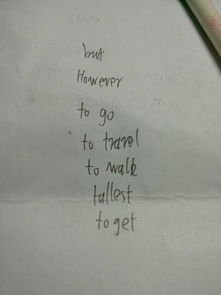 but
However
to go
to travel
to walk
tallest
to get